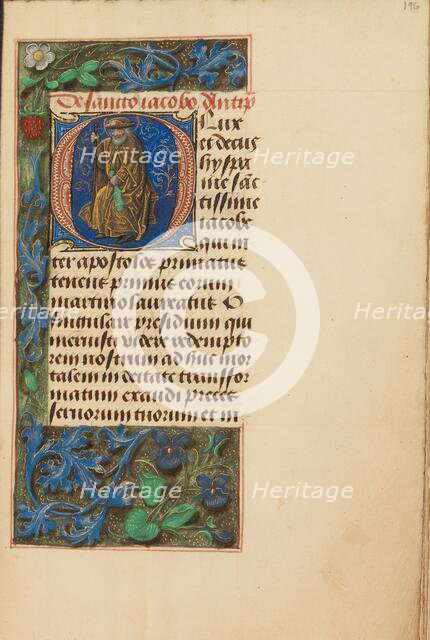 196
De sancto iacobo Antip
O Lux
et decus
hyspa
nie sāc
tissime
iacobe
qui in
ter apostolos primatus
tenens primus eorum
martirio laureatus O
singulare presidium qui
meruisti videre redempto
rem nostrum ad huc mor
talem in deitate transfor
matum exaudi preces
servorum tuorum et in
Heritage
Heritage
Heritage
Heritage
Heritage
Heritage
Heritage